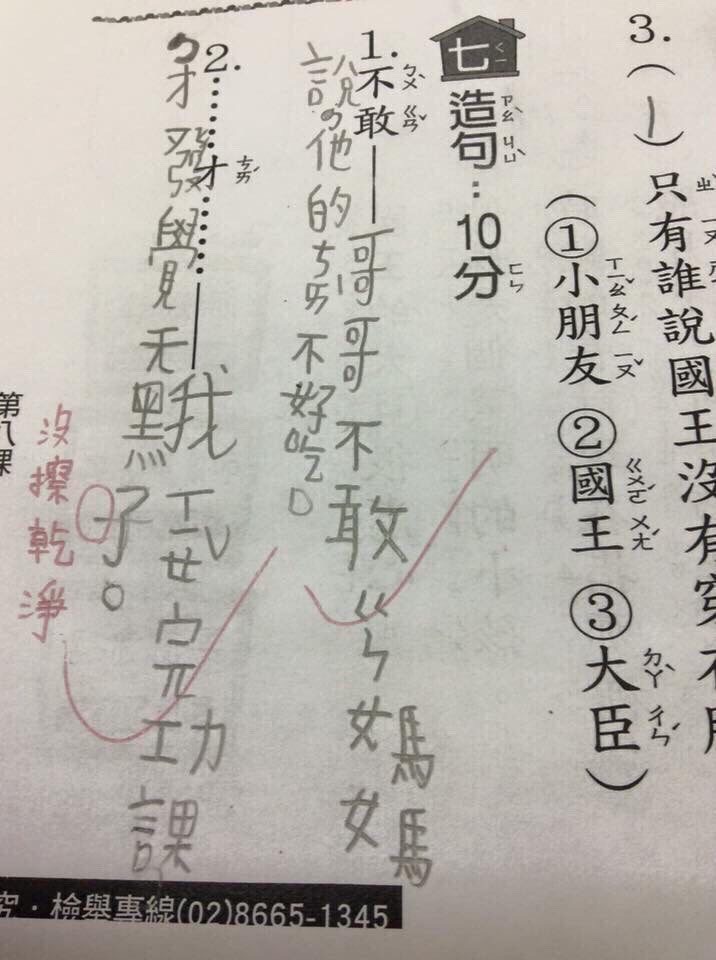 3.(1)只有誰說國王沒有穿
(①小朋友 ②國王 ③大臣)
七 造句:10分
1.不敢——哥哥不敢ㄍㄣ媽媽
說,他的ㄘㄞ不好吃。
2.……才……——我ㄒㄧㄝ完功課
,才發覺天黑
了。
沒擦乾淨
第八課
究·檢舉專線(02)8665-1345